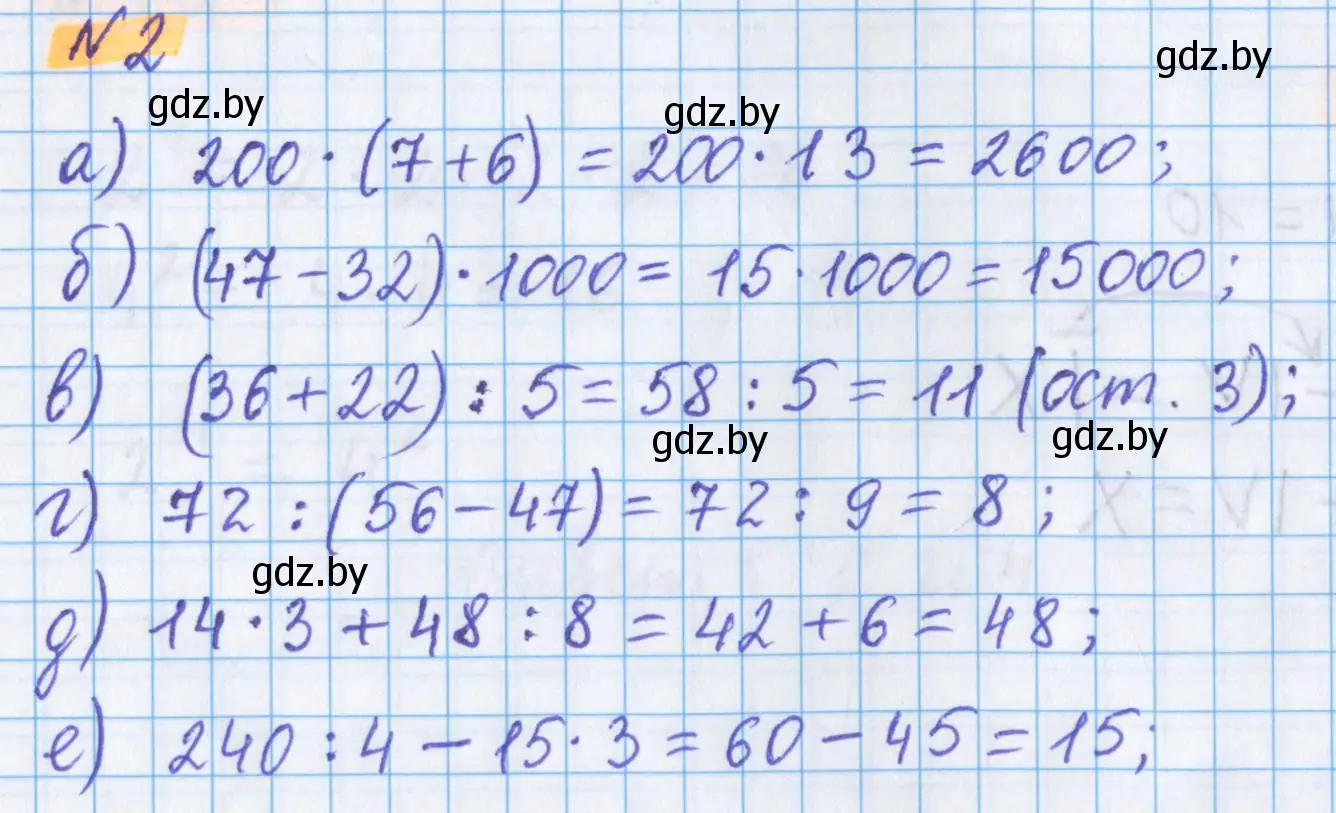 № 2
gdz.by
gdz.by
gdz.by
а) 200 · (7 + 6) = 200 · 13 = 2600;
б) (47 – 32) · 1000 = 15 · 1000 = 15000;
в) (36 + 22) : 5 = 58 : 5 = 11 (ост. 3);
gdz.by
gdz.by
г) 72 : (56 – 47) = 72 : 9 = 8;
gdz.by
д) 14 · 3 + 48 : 8 = 42 + 6 = 48;
е) 240 : 4 – 15 · 3 = 60 – 45 = 15;